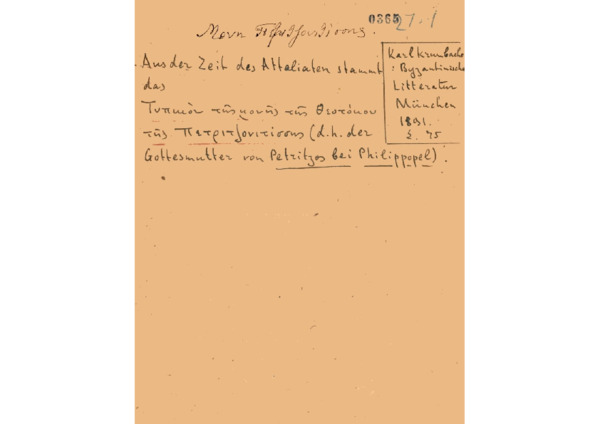 0365
27.1
Μονη Πετριτζονιτίσσης.
Aus der Zeit des Attaliaten stammt
das
Τυπικὸν τῆς μονῆς τῆς Θεοτόκου
τῆς Πετριτζονιτίσσης (d.h. der
Gottesmutter von Petritzos bei Philippopel).
Karl Krumbacher
: Byzantinische
Litteratur
München
1891.
S. 75